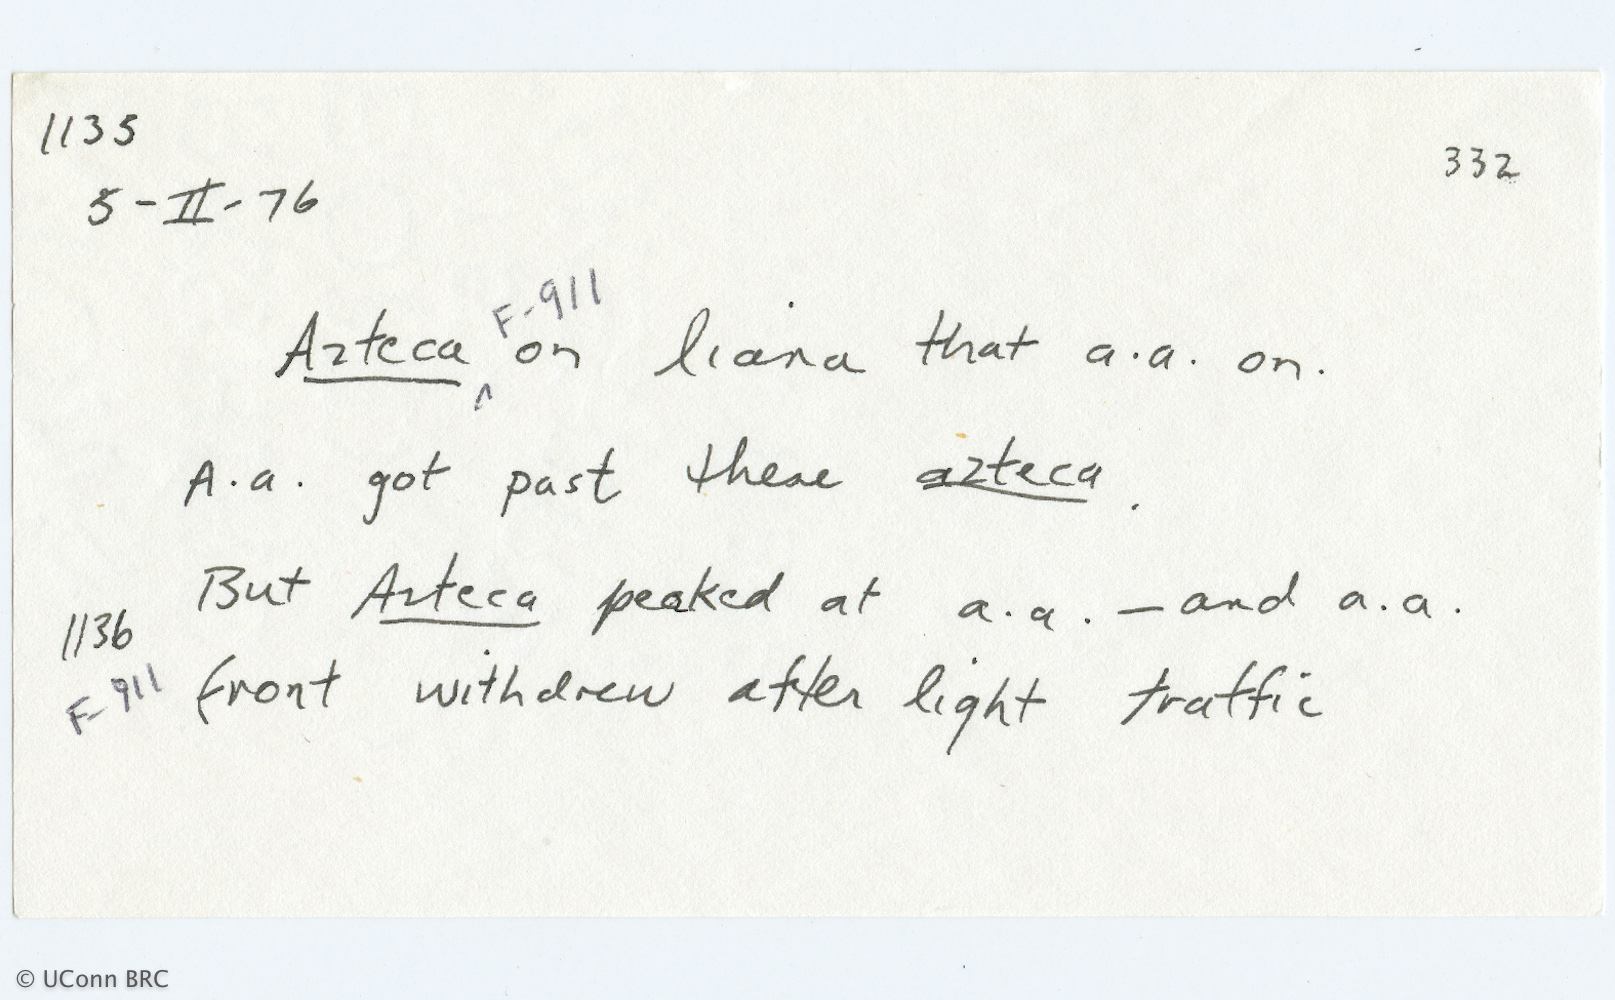 1135
332
5-II-76
F-911
Azteca ^ on liana that a.a. on.
A.a. got past these azteca.
But Azteca peaked at a.a. — and a.a.
1136
front withdrew after light traffic
F-911
© UConn BRC